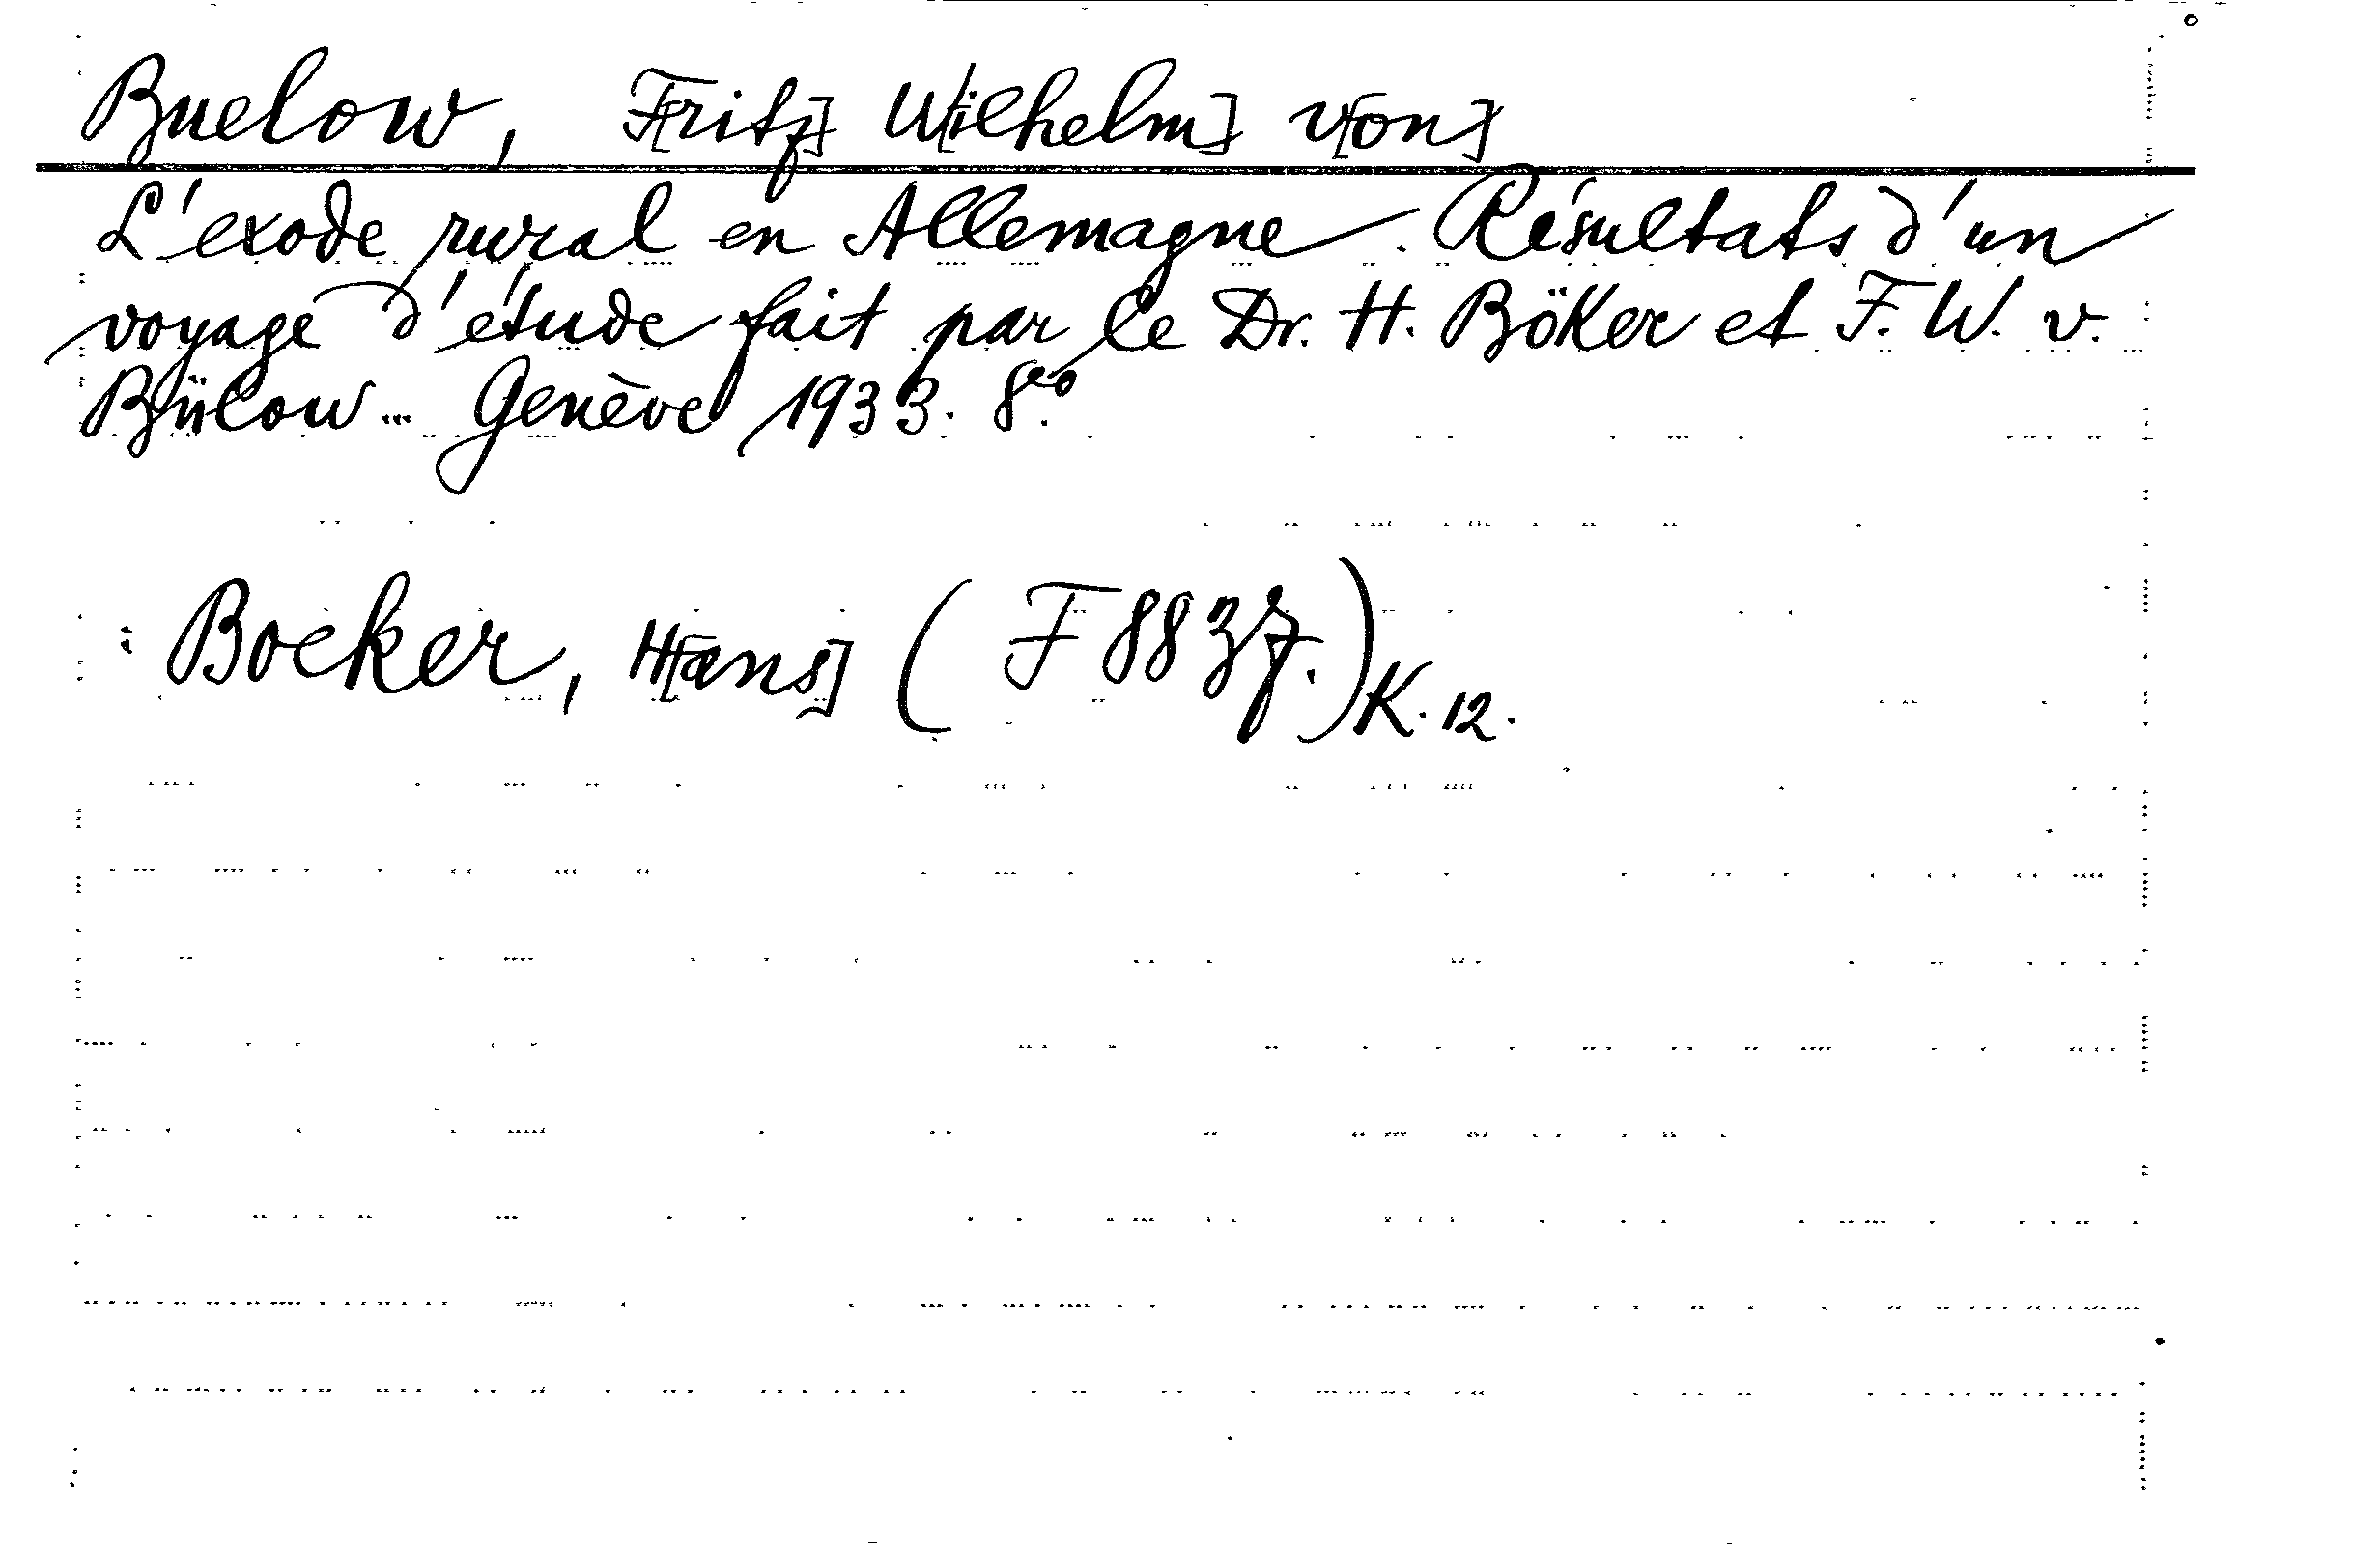 Buelow, F[ritz] W[ilhelm] v[on]
L'exode rural en Allemagne. Résultats d'un
voyage d'étude fait par le Dr. H. Böker et F. W. v.
Bülow... Genève 1933. 8vo.
: Boeker, H[ans] (F 8837.) K. 12.